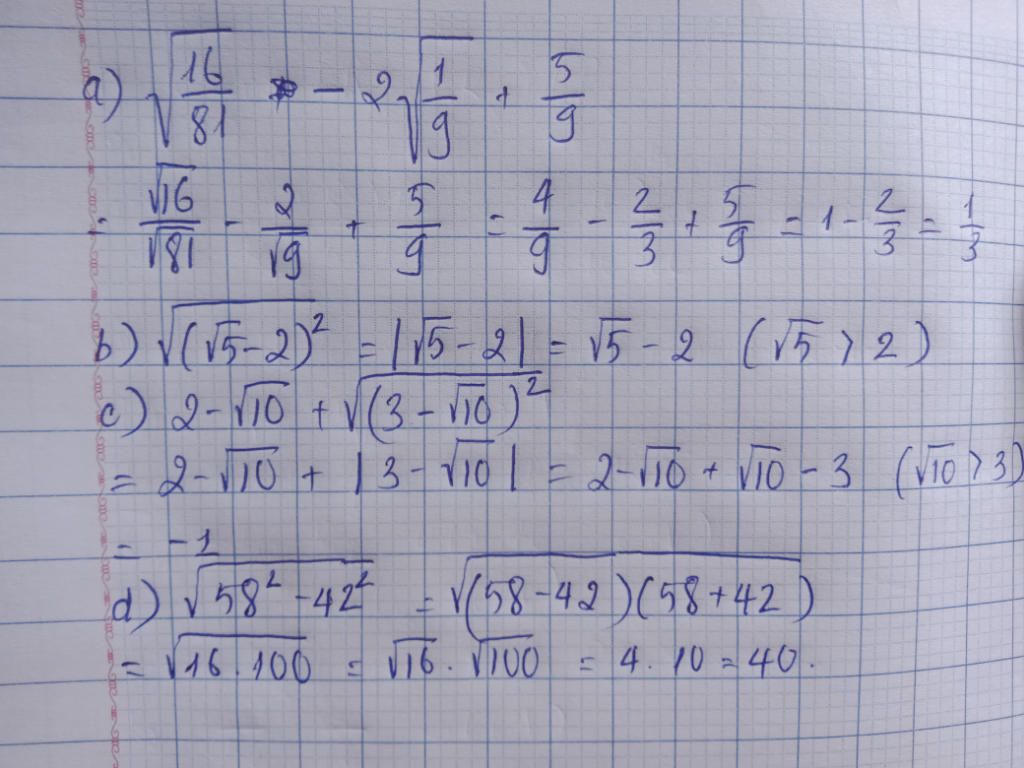 a) √(16/81) - 2√(1/9) + 5/9
= √16/√81 - 2/√9 + 5/9 = 4/9 - 2/3 + 5/9 = 1 - 2/3 = 1/3
b) √((√5-2)²) = |√5-2| = √5-2 (√5 > 2)
c) 2-√10 + √((3-√10)²)
= 2-√10 + |3-√10| = 2-√10 + √10 - 3 (√10 > 3)
= -1
d) √(58²-42²) = √((58-42)(58+42))
= √(16.100) = √16 . √100 = 4.10 = 40.